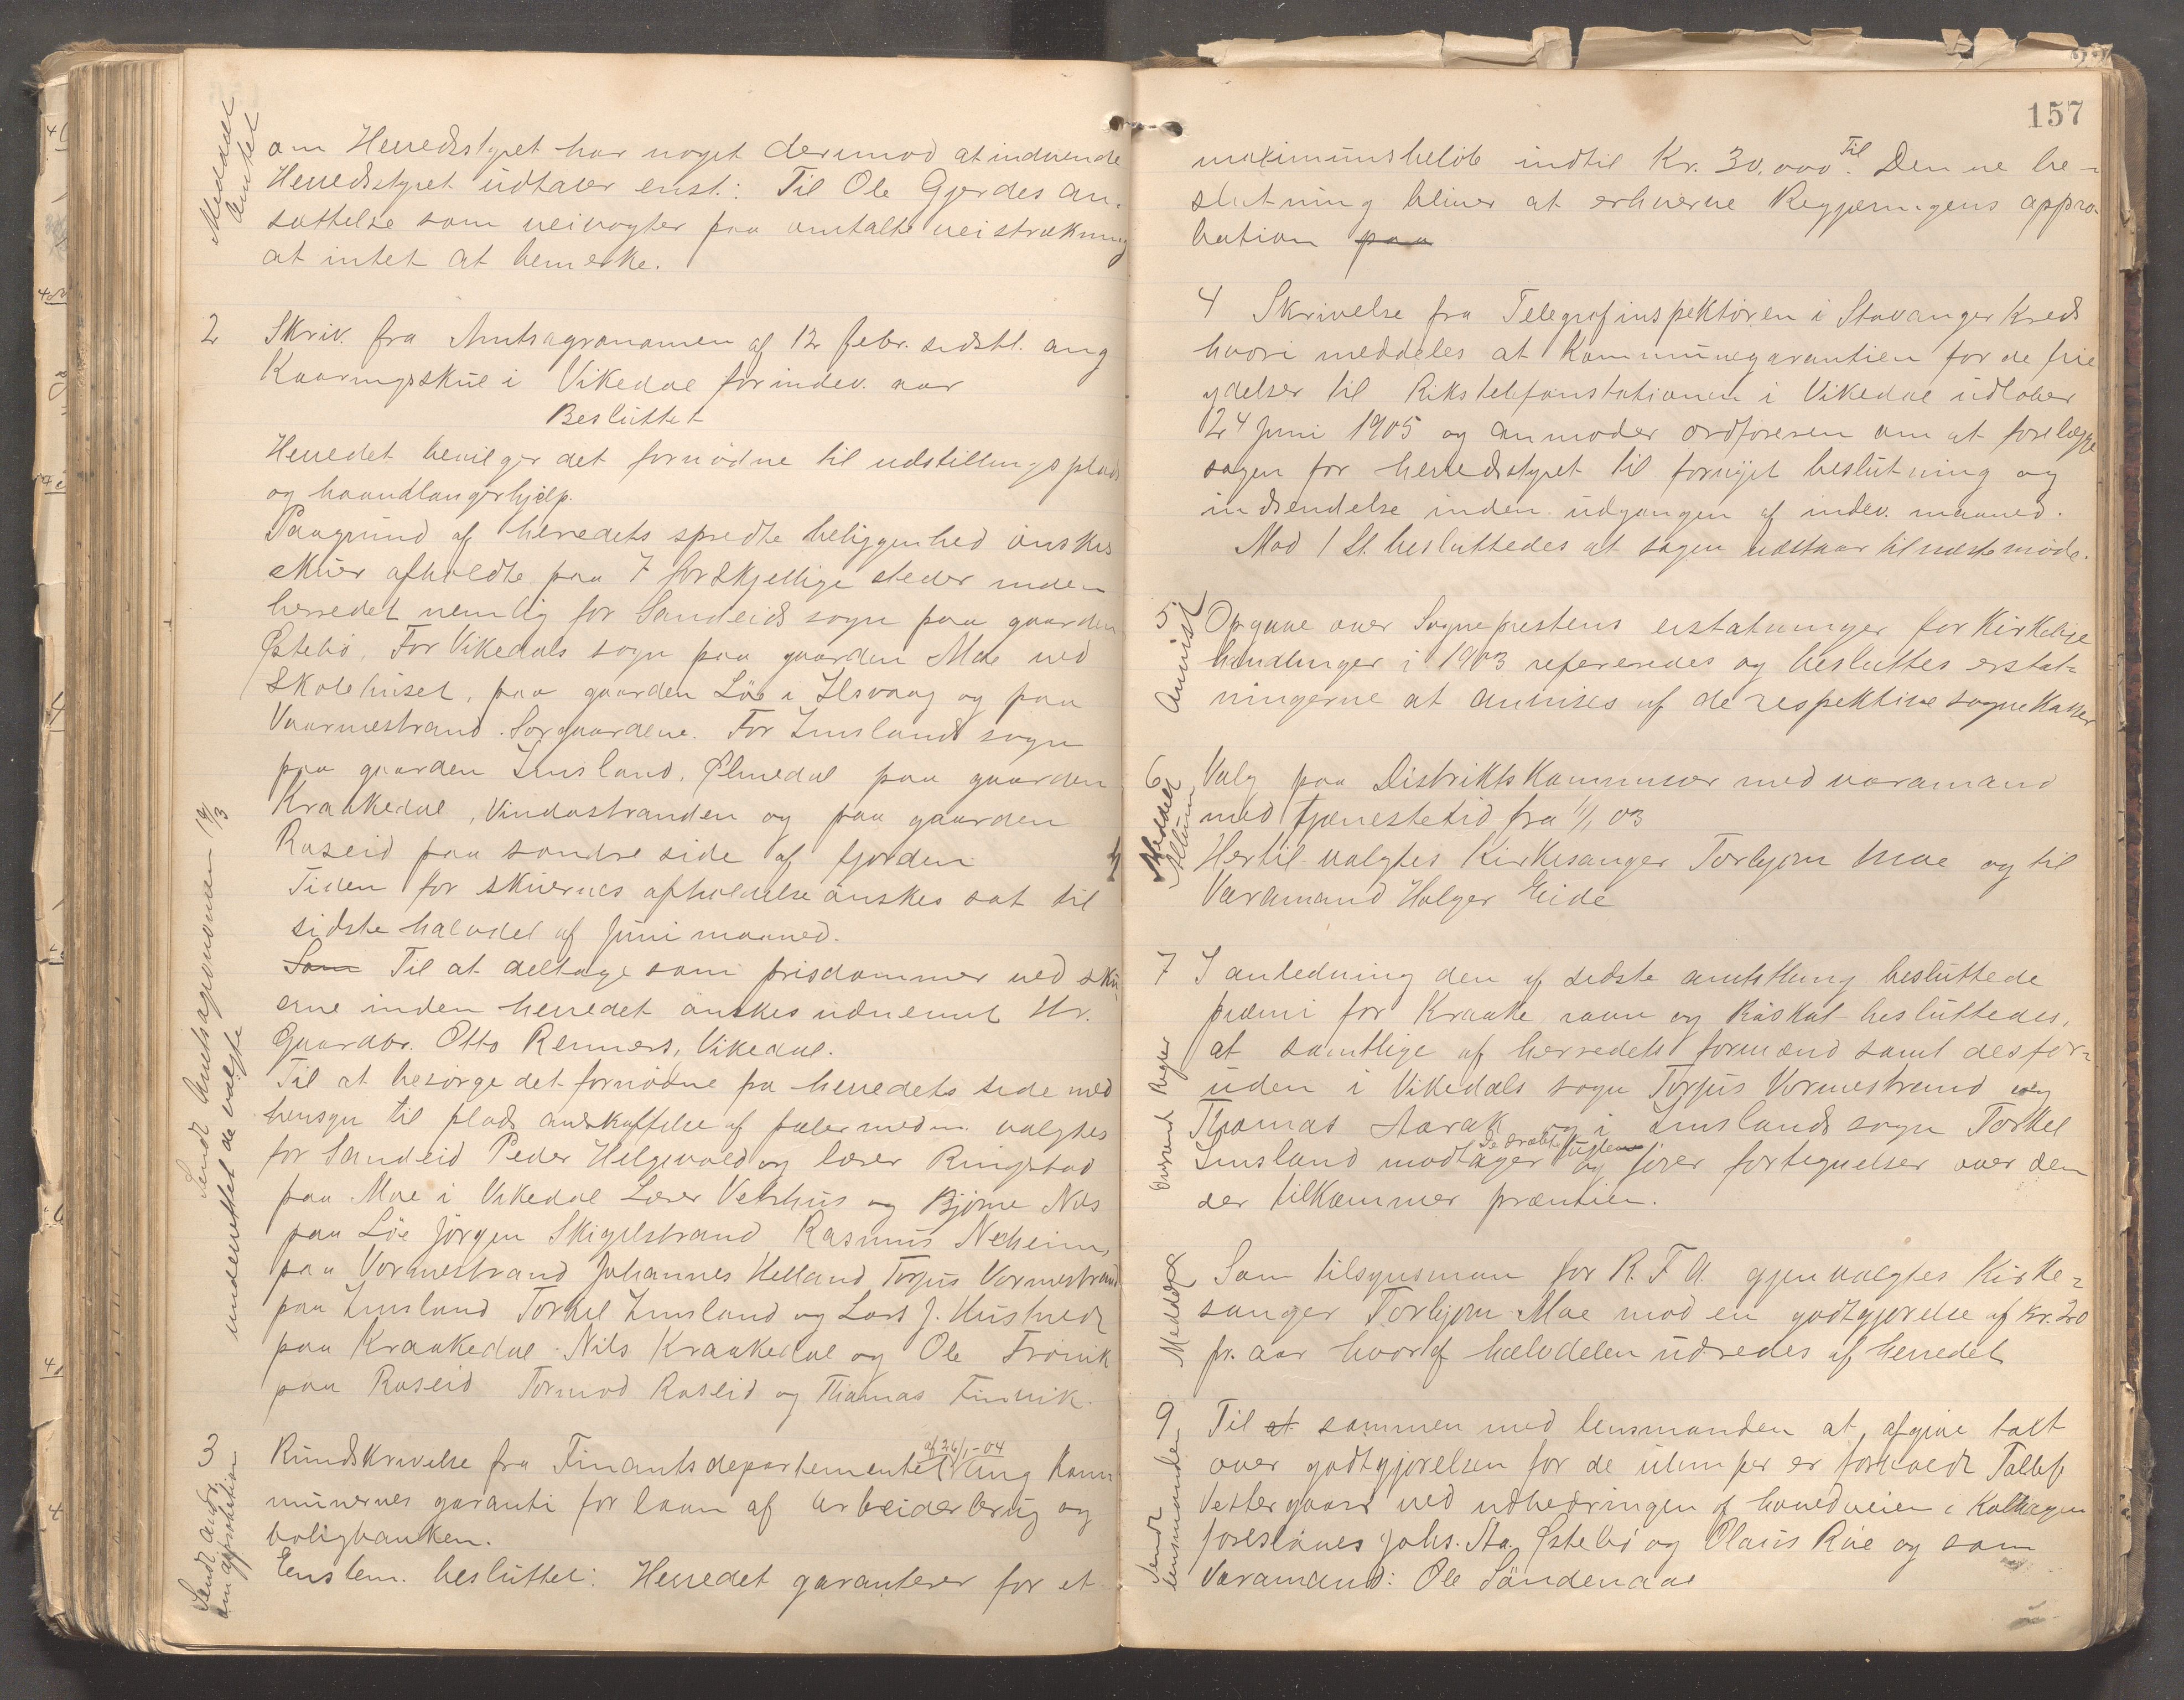 Meddelt
Amtet
om Herredsstyret har noget derimod at indvende
Herredsstyret udtaler enst.: Til Ole Gjerdes an-
sættelse som veivogter paa omtalte veistrækning
at intet at bemerke.
2 Skriv. fra Amtsagronomen af 12 febr. sidstl. ang
Kaaringsskue i Vikedal for indev. aar
Besluttet
Herredet bevilger det fornødne til udstillingsplads
og haandlangerhjelp.
Paagrund af herredets spredte beliggenhed ønskes
skuer afholdte paa 7 forskjellige steder inden
herredet nemlig for Sandeids sogn paa gaarden
Østebø. For Vikedals sogn paa gaarden Moe ved
Skolehuset, paa gaarden Løe i Ilsvaag og paa
Vaarmestrand. Sørgaardene. For Imslands sogn
paa gaarden Imsland, Ølmedal paa gaarden
Kraakedal, Vindastranden og paa gaarden
Roseid paa søndre side af fjorden
Tiden for skuernes afholdelse ønskes sat til
sidste halvdel af Juni maaned.
Som Til at deltage som prisdommer ved sku-
erne inden herredet ønskes udnevnt Hr.
Gaardbr. Otto Renners, Vikedal.
Til at besørge det fornødne fra herredets side med
hensyn til plads anskaffelse af pæler medm. valgtes
for Sandeid Peder Helgevold og lærer Ringstad
paa Moe i Vikedal Lærer Vetrhus og Bjørne Nils
paa Løe Jørgen Skigelstrand Rasmus Nerheim,
paa Vormestrand Johannes Helland, Torjus Vormestrand
paa Imsland Torkel Imsland og Lars J. Hustvedt
paa Kraakedal Nils Kraakedal og Ole Frøvik
paa Roseid Tormod Roseid og Thomas Finnvik.
Sendt Amtsagronomen 19/3
underrettet de valgte
3 Rundskrivelse fra Finantsdepartementet af 26/1-04 ang Kom
munernes garanti for laan af Arbeiderbrug og
boligbanken.
Enstem. besluttet: Herredet garanterer for et
Sendt andr.
om approbation
157
maximumsbeløb indtil Kr. 30.000 Til. Denne be-
slutning bliver at erhverve Regjeringens appro-
bation paa
4 Skrivelse fra Telegrafinspektøren i Stavanger Kreds
hvori meddeles at Kommunegarantien for de frie
ydelser til Rikstelefonstationen i Vikedal udløber
24 Juni 1905 og anmoder ordføreren om at forelægge
sagen for herredsstyret til fornyet beslutning og
indsendelse inden udgangen af indev. maaned.
Mod 1 St. besluttedes at sagen udstaar til næste møde.
Anvist
5 Opgave over Sogneprestens erstatninger for Kirkelige
handlinger i 1903 refereredes og besluttes erstat-
ningerne at anvises af de respektive sognekasser
Meddelt
6 Valg paa Distriktskommisær med varamand
med tjenestetid fra 1/1 03
Hertil valgtes Kirkesanger Torbjørn Moe og til
Varamand Holger Eide
7 I anledning den af sidste amtsthing besluttede
præmi for Kraake ravn og Råskat besluttedes,
at samtlige af herredets formænd samt desfor-
uden i Vikedals sogn Torjus Vormestrand og
Thomas Aarak og i Imslands sogn Torkel
Imsland modtager de dræbte fuglene og fører fortegnelser over dem
der tilkommer præmien.
Meddelt
8 Som tilsynsman for R. F. A. gjenvalgtes Kirke-
sanger Torbjørn Moe mod en godtgjørelse af Kr. 20
pr. aar hvoraf halvdelen udredes af herredet
Sendt
lensmanden
9 Til at sammen med lensmanden at afgive takt
over godtgjørelsen for de ulemper er forvoldt Tollef
Vestergaard ved udbedringen af hovedveien i Kolhagen
foreslaaes Johs. Sta. Østebø og Olaus Røe og som
Varamand: Ole Søndenaa